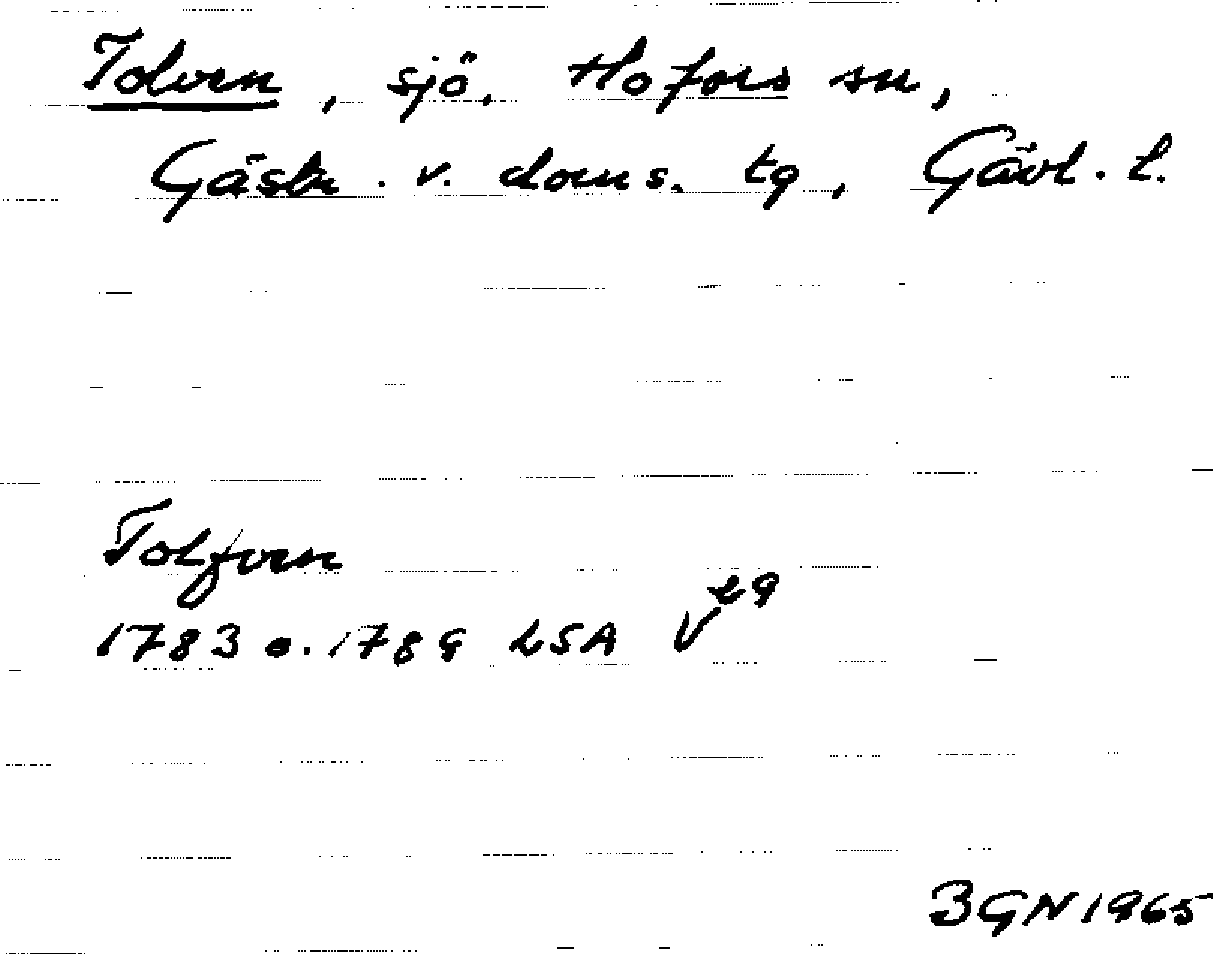 Tolven, sjö, Hofors sn,
Gästr. v. doms. tg, Gävl. l.
Tolfven
1783 o. 1789 LSA V 29
BGN 1965